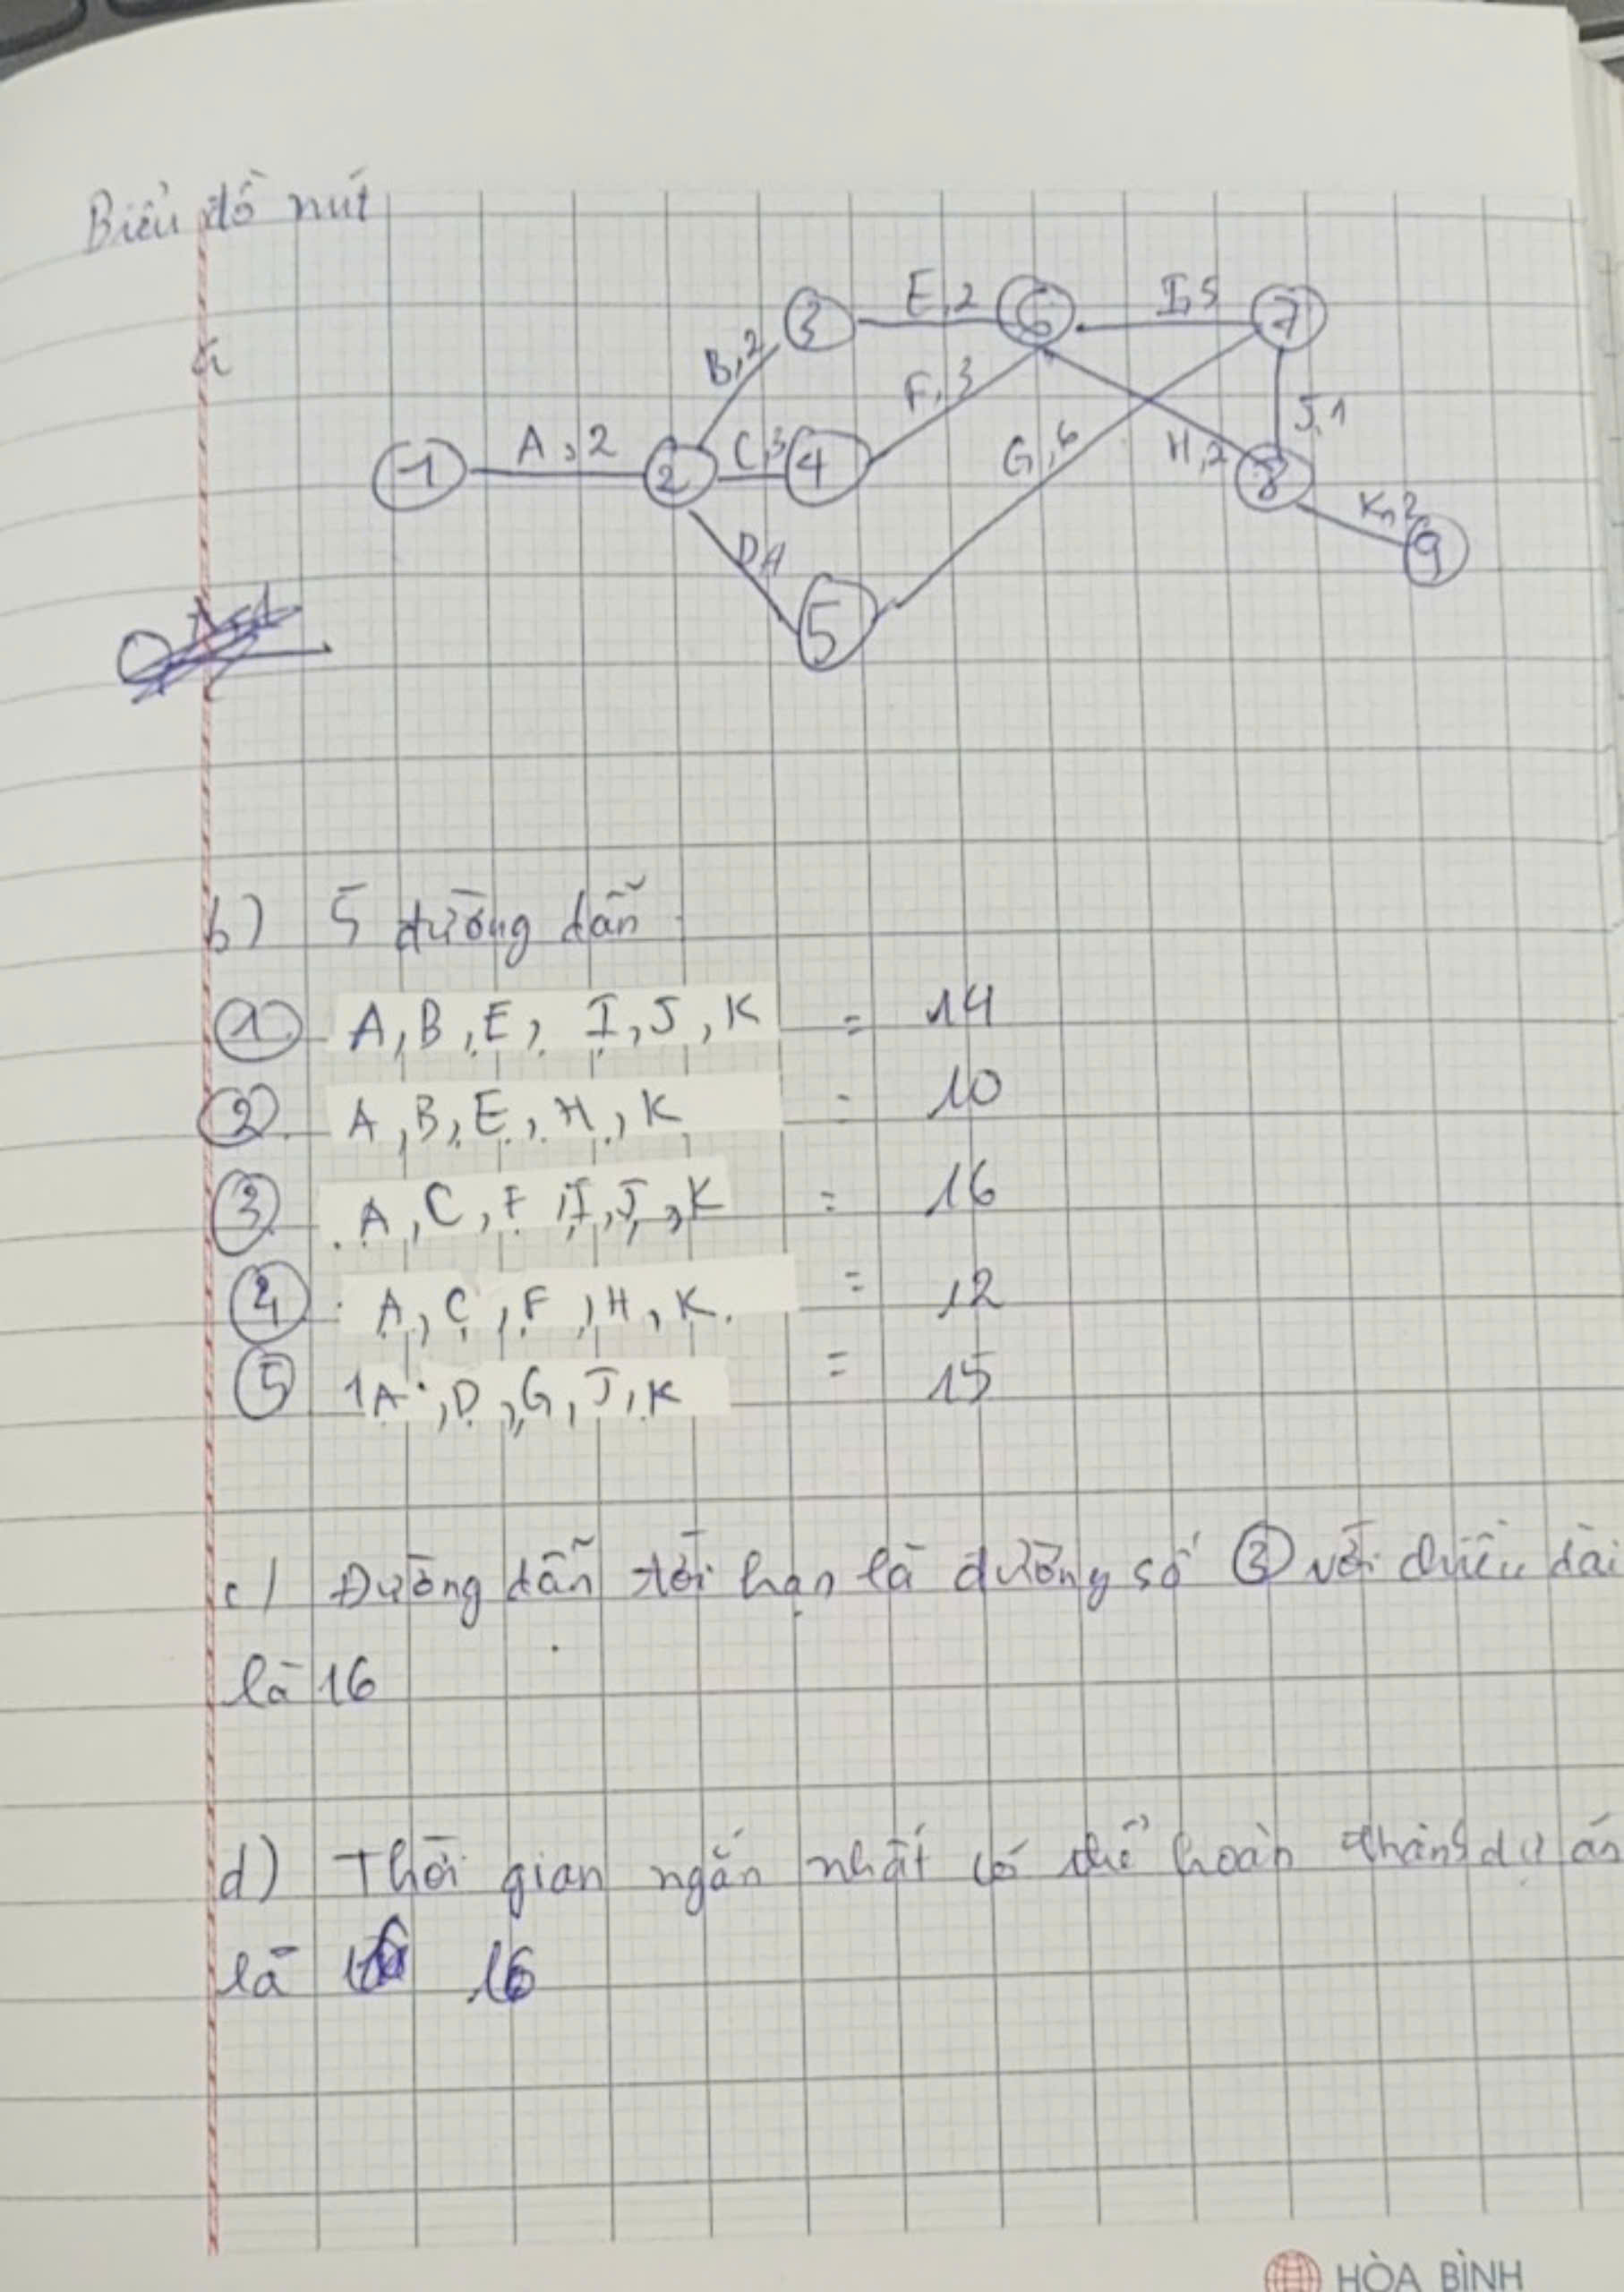 Biểu đồ nút
a
E,2
I,5
3
6
7
B,2
F,3
J,1
A,2
C,3
G,6
H,2
1
2
4
8
K,2
9
D,4
5
b) 5 đường dẫn
1 A, B, E, I, J, K = 14
2 A, B, E, H, K = 10
3 A, C, F, I, J, K = 16
4 A, C, F, H, K. = 12
5 1A, D, G, J, K = 15
c) Đường dẫn tới hạn là đường số 3 với chiều dài
là 16
d) Thời gian ngắn nhất có thể hoàn thành dự án
là 16
HÒA BÌNH